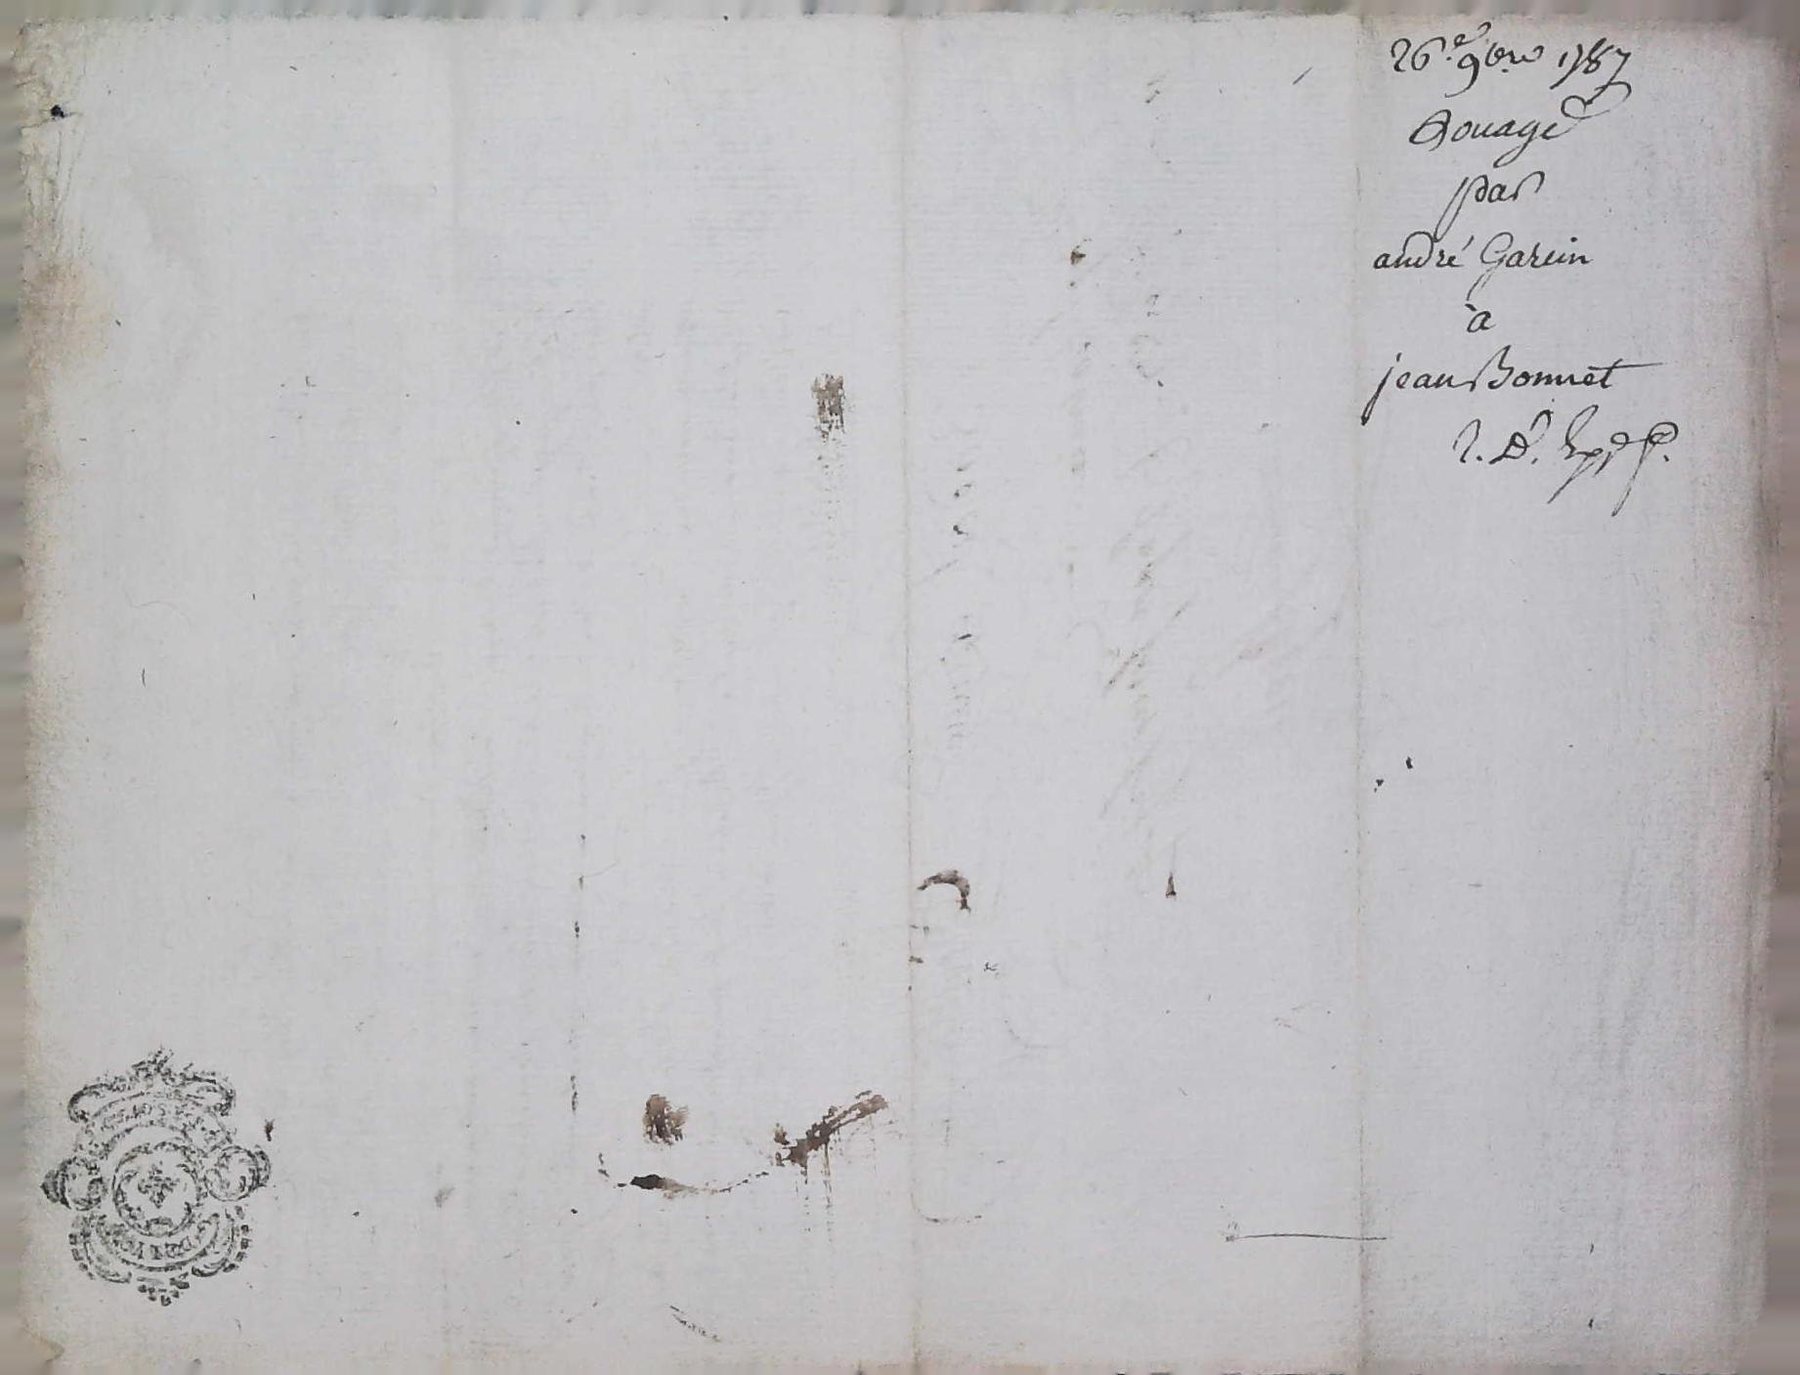 26.e 9bre 1787
Louage
par
andré Garcin
à
jean Bonnet